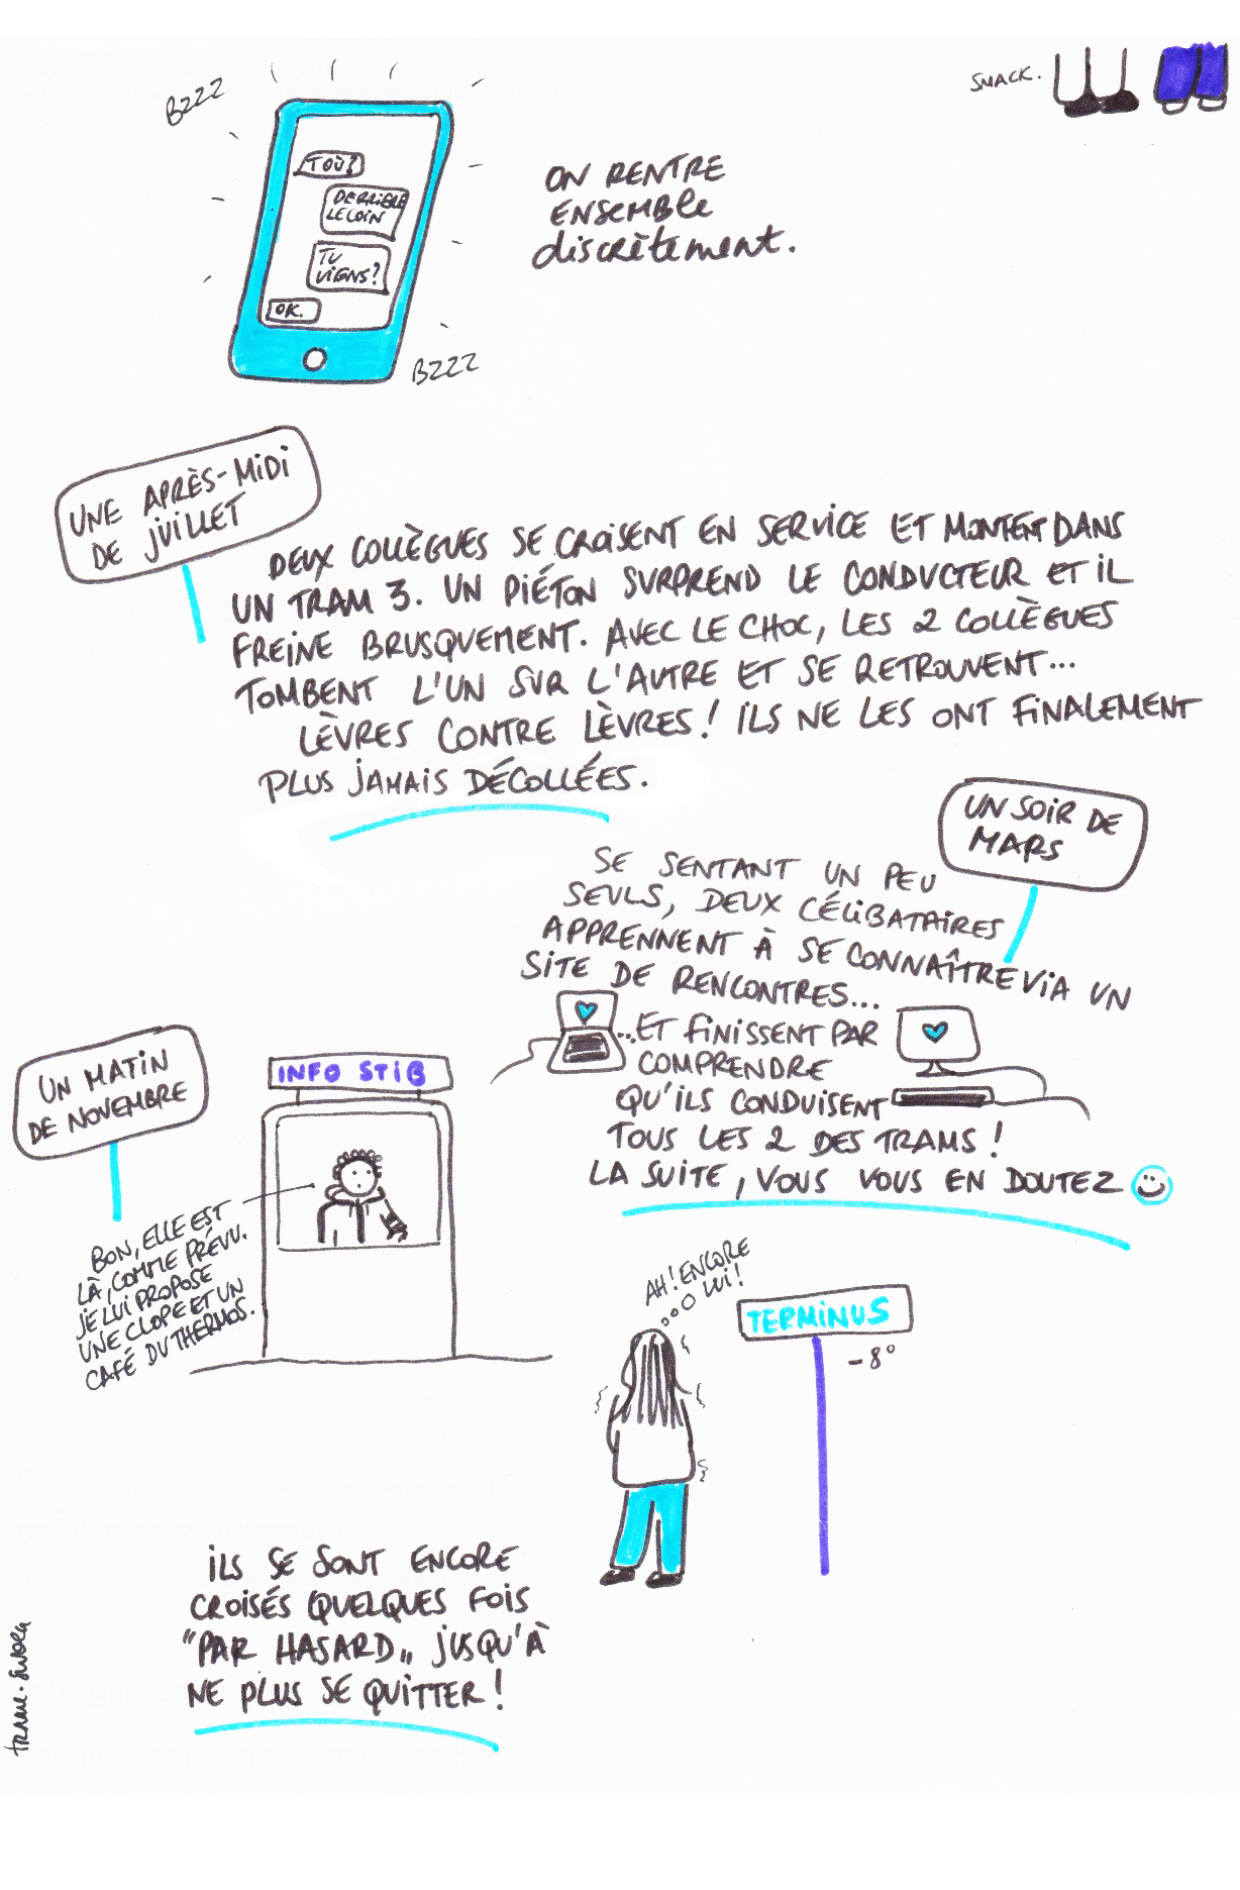 SMACK.
BZZZ
TOÙ?
DERRIÈRE
LE COIN
TU
VIENS?
OK.
BZZZ
ON RENTRE
ENSEMBLE
discrètement.
UNE APRÈS-MIDI
DE JUILLET
DEUX COLLÈGUES SE CROISENT EN SERVICE ET MONTENT DANS
UN TRAM 3. UN PIÉTON SURPREND LE CONDUCTEUR ET IL
FREINE BRUSQUEMENT. AVEC LE CHOC, LES 2 COLLÈGUES
TOMBENT L'UN SUR L'AUTRE ET SE RETROUVENT...
LÈVRES CONTRE LÈVRES! ILS NE LES ONT FINALEMENT
PLUS JAMAIS DÉCOLLÉES.
UN SOIR DE
MARS
SE SENTANT UN PEU
SEULS, DEUX CÉLIBATAIRES
APPRENNENT À SE CONNAÎTRE VIA UN
SITE DE RENCONTRES...
...ET FINISSENT PAR
COMPRENDRE
QU'ILS CONDUISENT
TOUS LES 2 DES TRAMS!
LA SUITE, VOUS VOUS EN DOUTEZ
UN MATIN
DE NOVEMBRE
INFO STIB
BON, ELLE EST
LÀ, COMME PRÉVU.
JE LUI PROPOSE
UNE CLOPE ET UN
CAFÉ DU THERMOS.
AH! ENCORE
LUI!
TERMINUS
-8°
ILS SE SONT ENCORE
CROISÉS QUELQUES FOIS
"PAR HASARD" JUSQU'À
NE PLUS SE QUITTER!